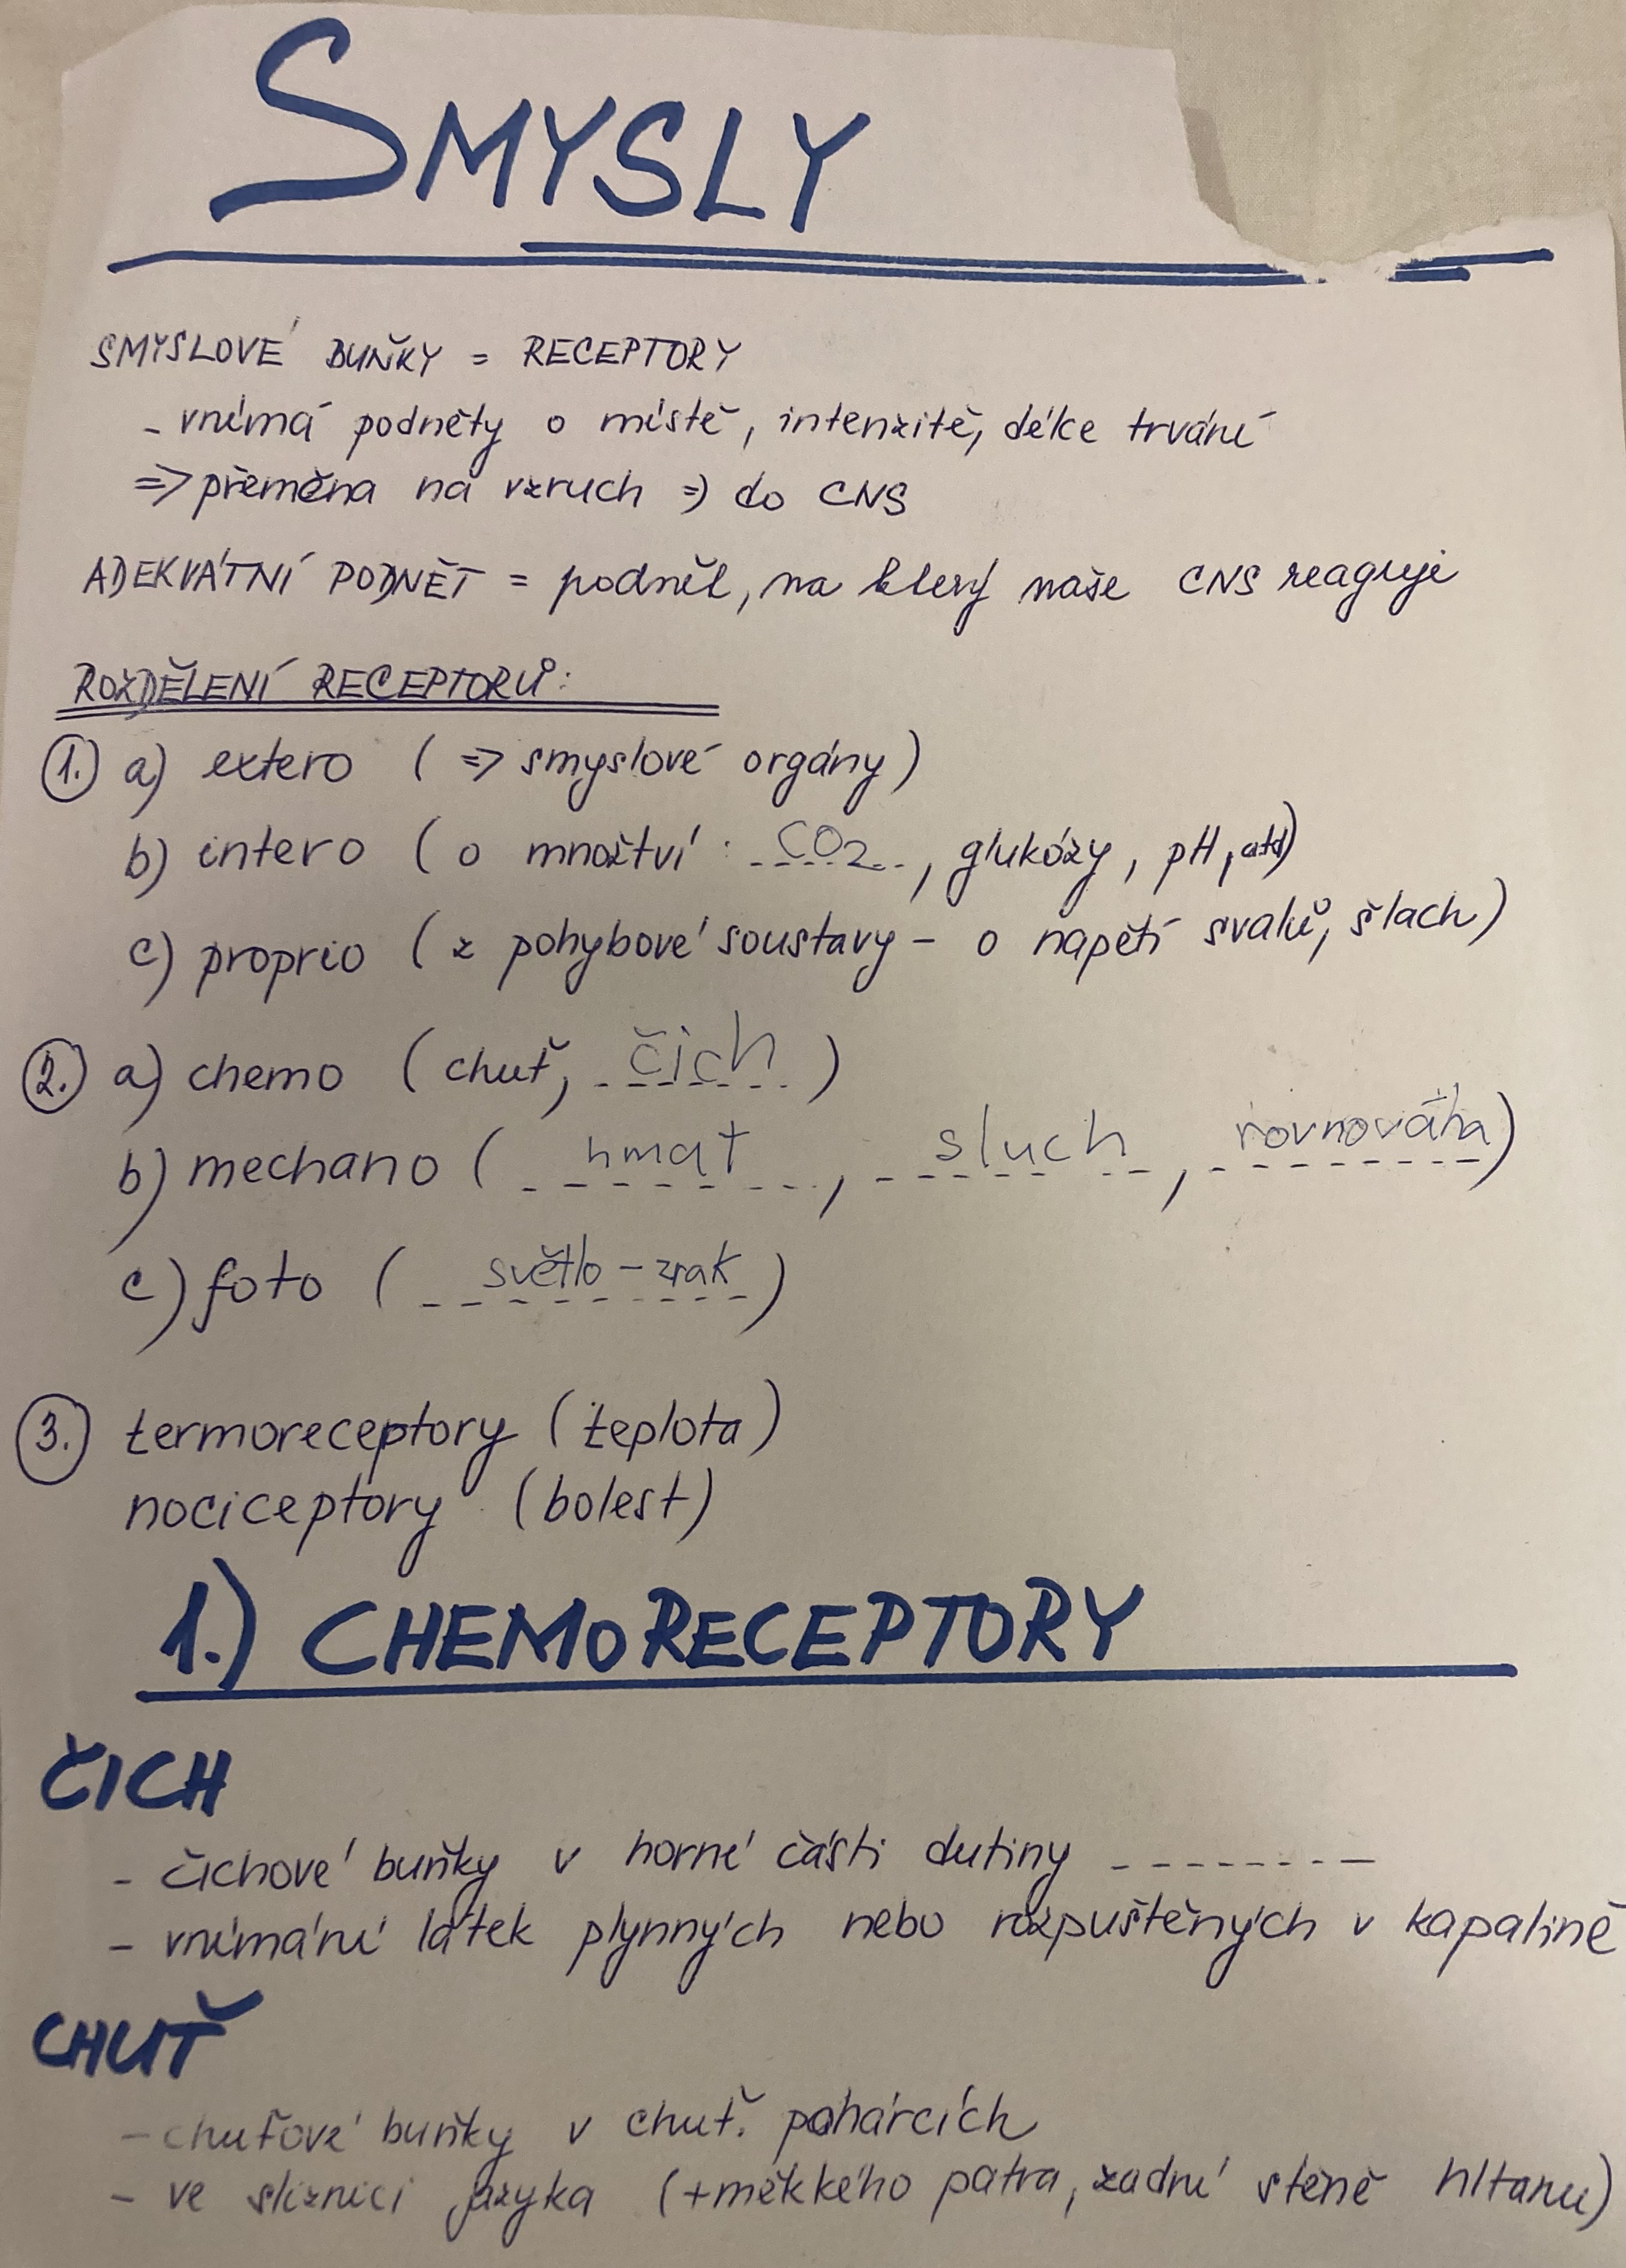 SMYSLY
SMYSLOVÉ BUŇKY = RECEPTORY
- vnímá podněty o místě, intenzitě, délce trvání
=> přeměna na vzruch => do CNS
ADEKVÁTNÍ PODNĚT = podnět, na který naše CNS reaguje
ROZDĚLENÍ RECEPTORŮ:
1. a) extero ( => smyslové orgány )
b) intero ( o množtví : CO2, glukózy, pH, atd)
c) proprio ( z pohybové soustavy - o napětí svalů, šlach )
2. a) chemo ( chuť, čich )
b) mechano ( hmat, sluch, rovnováha )
c) foto ( světlo - zrak )
3. termoreceptory ( teplota )
nociceptory (bolest)
1.) CHEMORECEPTORY
ČICH
- čichové buňky v horní části dutiny --------
- vnímání látek plynných nebo rozpuštěných v kapalině
CHUŤ
- chuťové buňky v chuť. pohárcích
- ve sliznici jazyka (+měkkého patra, zadní stěně hltanu)